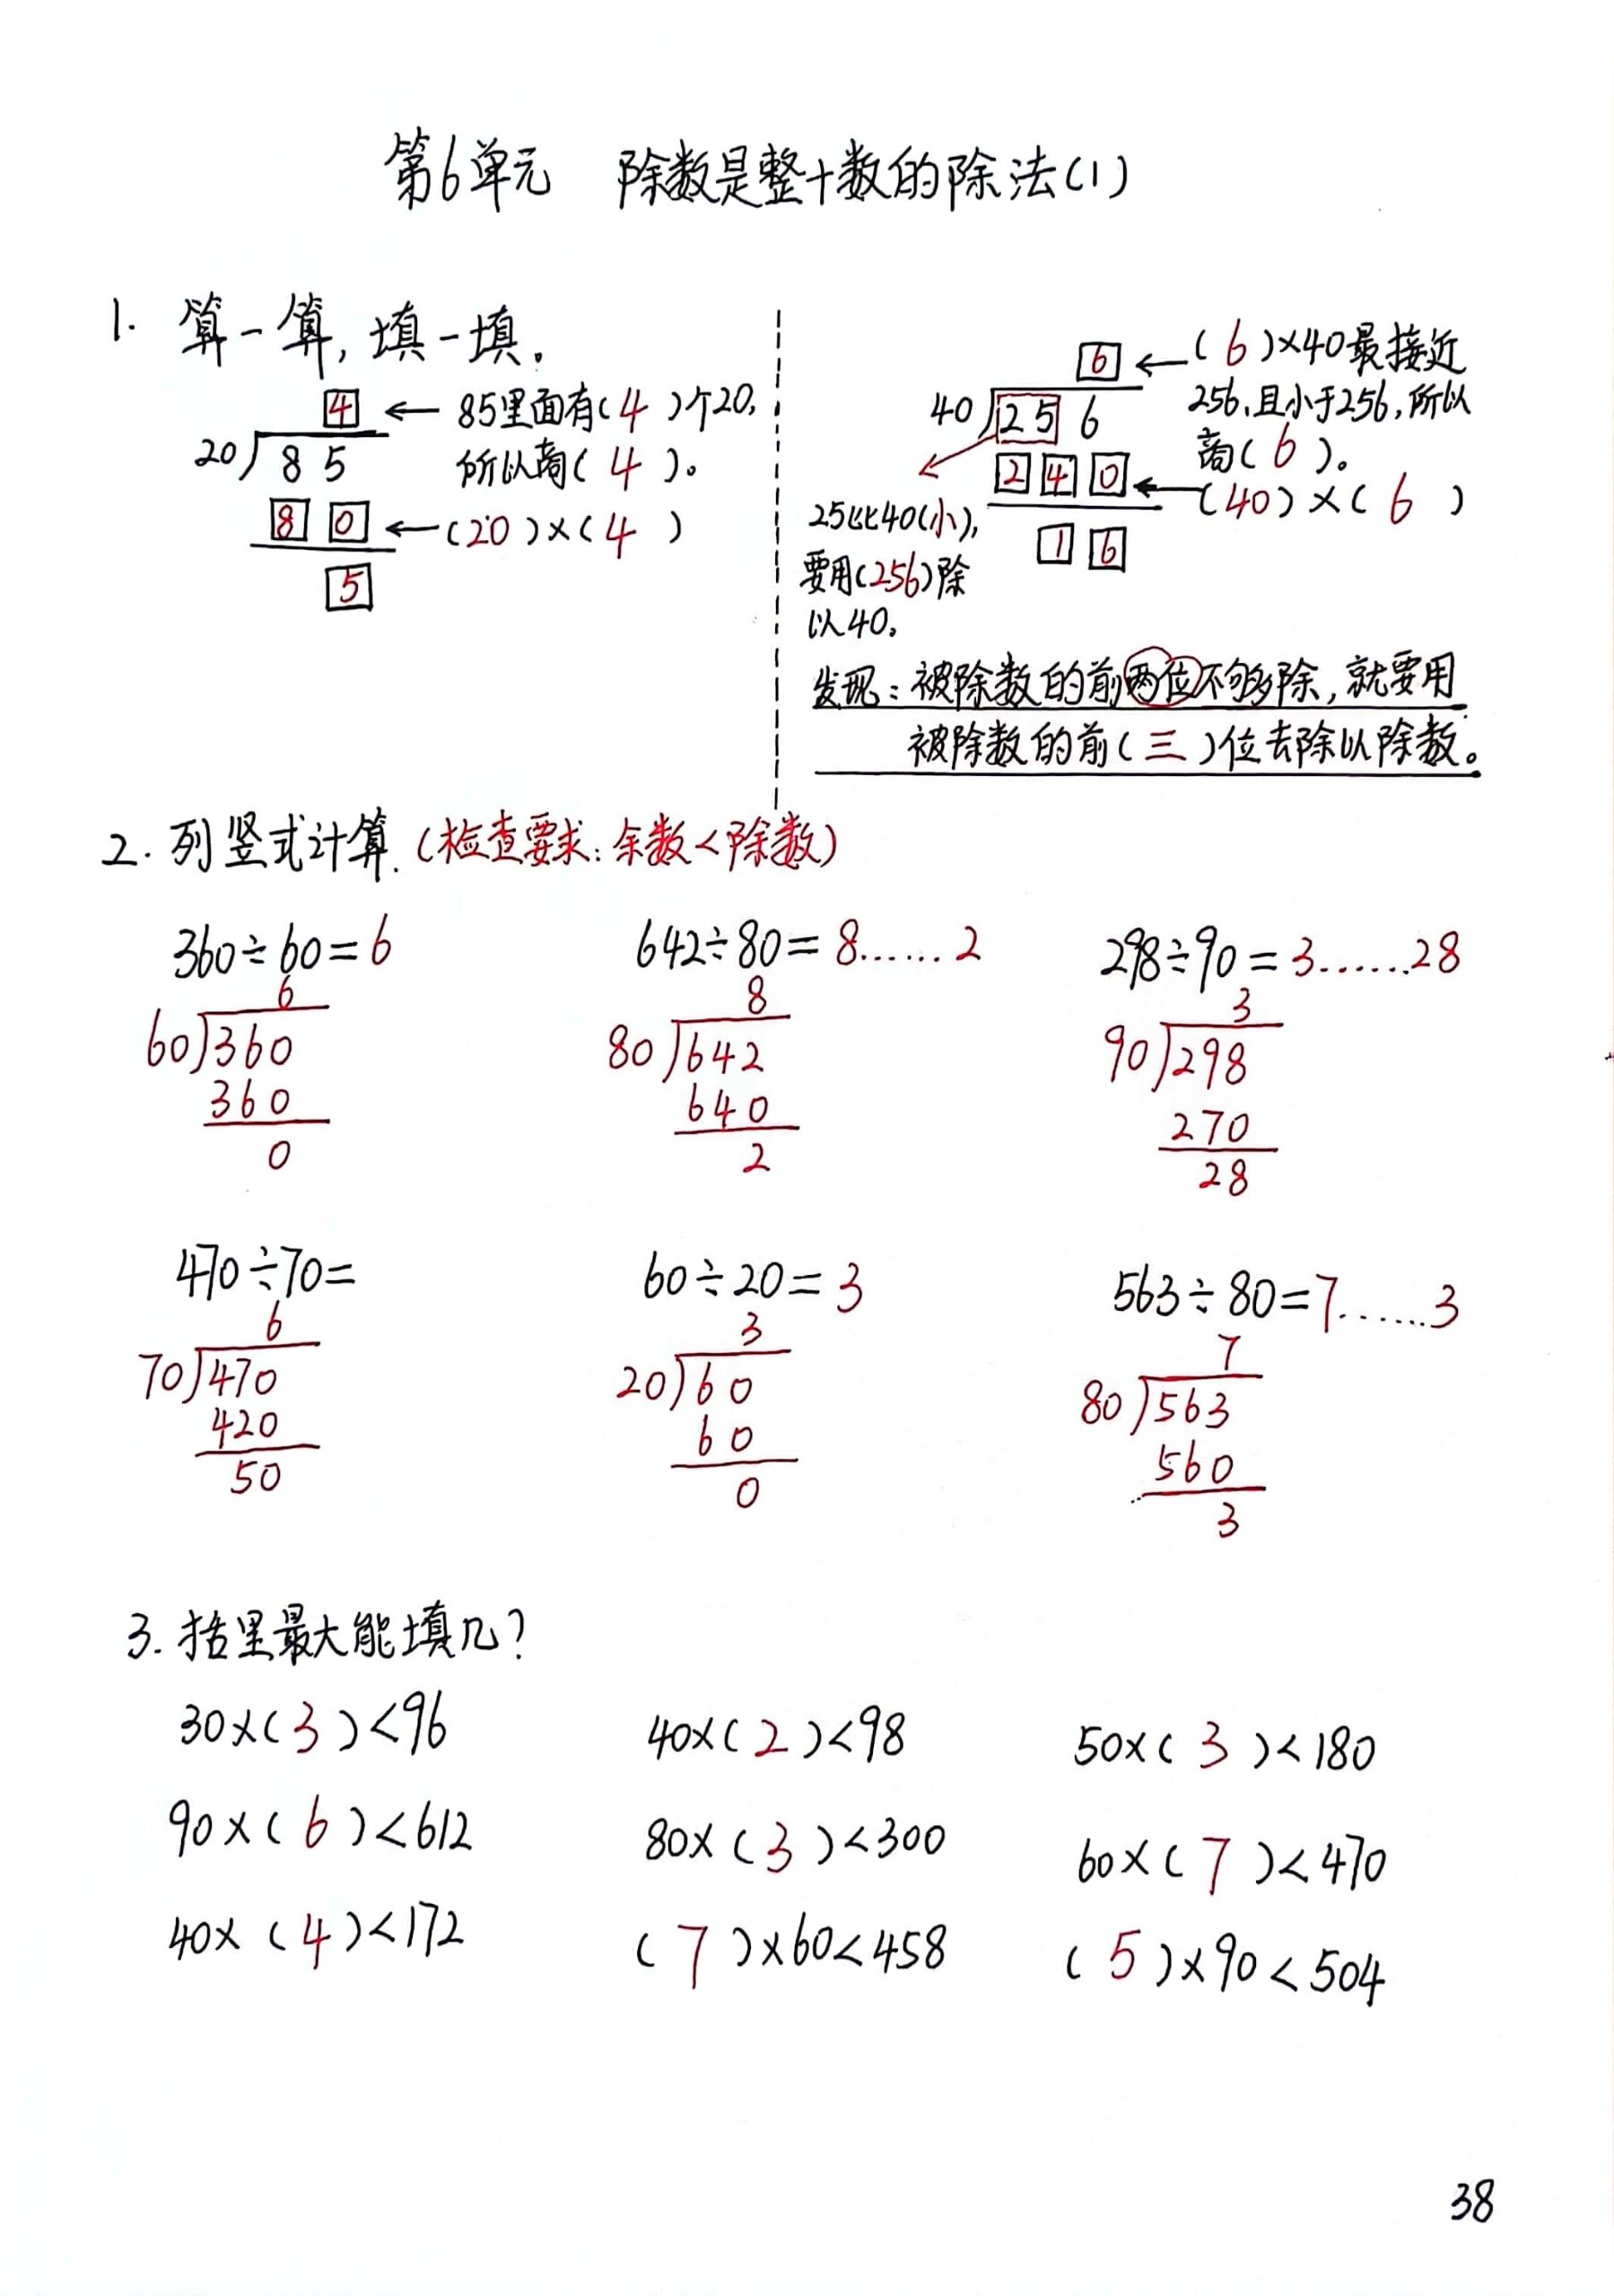 第6单元 除数是整十数的除法(1)
1. 算一算,填一填。
4 ← 85里面有(4)个20,
20)85 所以商(4)。
80 ← (20)×(4)
5
6 ← (6)×40最接近
40)256 256,且小于256,所以
商(6)。
240 ← (40)×(6)
25比40(小),
16
要用(256)除
以40。
发现:被除数的前两位不够除,就要用
被除数的前(三)位去除以除数。
2. 列竖式计算.(检查要求:余数<除数)
360÷60=6 642÷80=8……2 298÷90=3……28
6 8 3
60)360 80)642 90)298
360 640 270
0 2 28
470÷70= 60÷20=3 563÷80=7……3
6 3 7
70)470 20)60 80)563
420 60 560
50 0 3
3. 括里最大能填几?
30×(3)<96 40×(2)<98 50×(3)<180
90×(6)<612 80×(3)<300 60×(7)<470
40×(4)<172 (7)×60<458 (5)×90<504
38